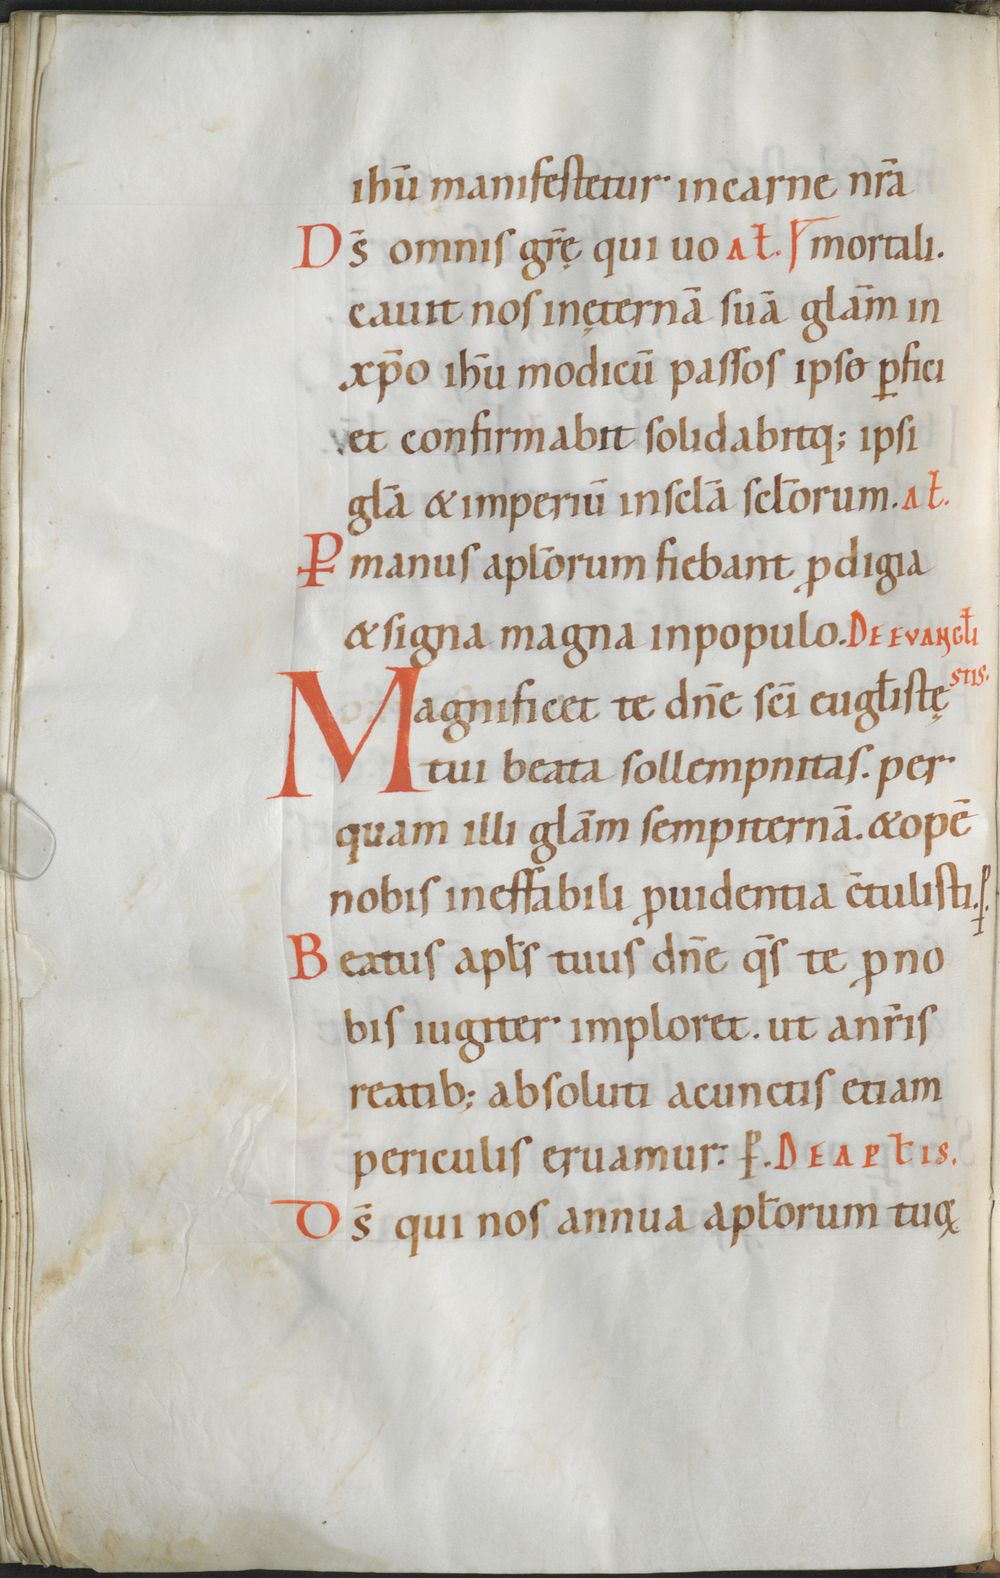 ihū manifestetur· incarne nr̄a
Ds̄ omnis gr̄ę qui uo Aƚ. mortali.
cauit nos inęternā suā glām in
xp̄o ihū modicū passos ipse ꝑfici
et confirmabit solidabitq; ipsi
glā & imperiū insclā sclorum. Aƚ.
P manus aplorum fiebant ꝓdigia
& signa magna inpopulo. DE EVANGLI
STIS.
Magnificet te dn̄e sc̄i eugƚistę
tui beata sollempnitas. per
quam illi glām sempiternā. & opē
nobis ineffabili ꝓuidentia c̄tulisti. ꝑ.
Beatus apƚs tuus dn̄e qs̄ te ꝓ no
bis iugiter imploret. ut anr̄is
reatib; absoluti acunctis etiam
periculis eruamur: ꝑ. DE APƚIS.
Ds̄ qui nos annua apƚorum tuoꝝ